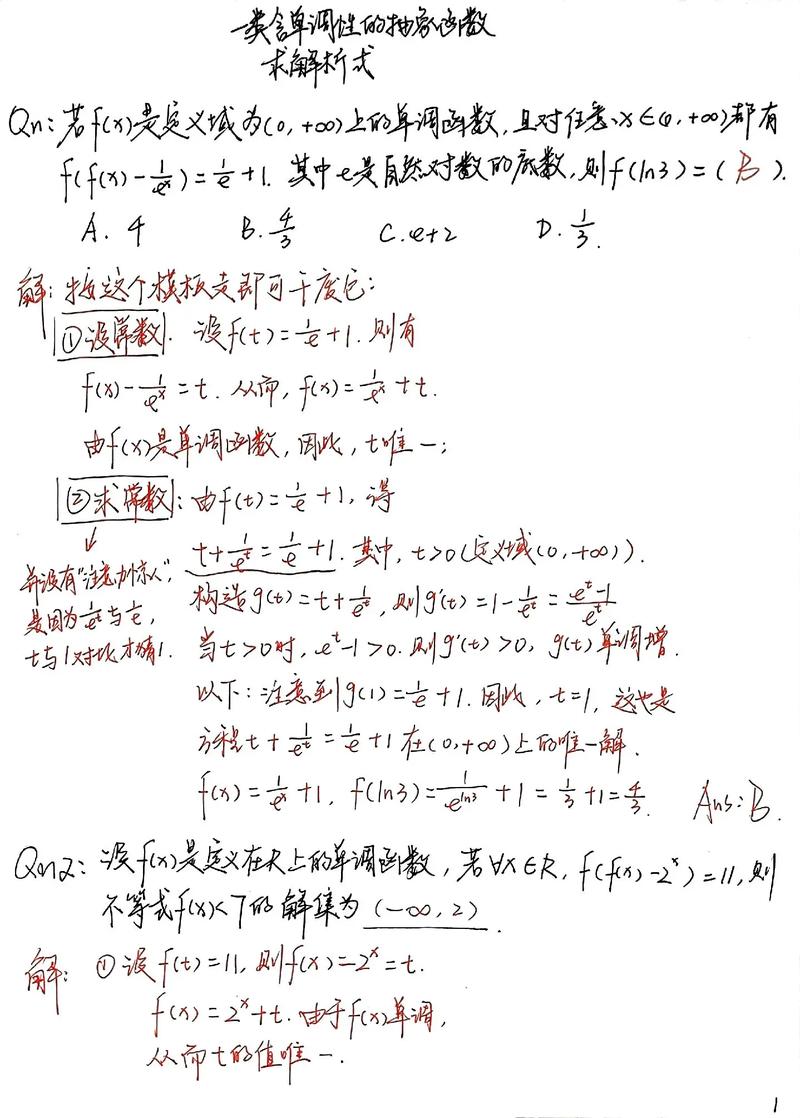 一类含单调性的抽象函数
求解析式
Qn1: 若f(x)是定义域为(0,+∞)上的单调函数,且对任意x∈(0,+∞)都有
f(f(x)-1/e^x)=1/e+1. 其中e是自然对数的底数,则f(ln3)=( B ).
A. 4 B. 4/3 C. e+2 D. 1/3.
解: 按这个模板走即可干废它:
①设常数. 设f(t)=1/e+1. 则有
f(x)-1/e^x=t. 从而, f(x)=1/e^x+t.
由f(x)是单调函数,因此,t唯一;
②求常数: 由f(t)=1/e+1, 得
t+1/e^t=1/e+1. 其中, t>0(定义域(0,+∞)).
并没有"注意力惊人",
是因为1/e^t与1/e,
t与1对比才猜1.
构造g(t)=t+1/e^t, 则g'(t)=1-1/e^t=(e^t-1)/e^t
当t>0时, e^t-1>0. 则g'(t)>0, g(t)单调增.
以下: 注意到g(1)=1/e+1. 因此, t=1, 这也是
方程t+1/e^t=1/e+1在(0,+∞)上的唯一解.
f(x)=1/e^x+1, f(ln3)=1/e^ln3+1=1/3+1=4/3. Ans: B.
Qn2: 设f(x)是定义在R上的单调函数, 若∀x∈R, f(f(x)-2^x)=11, 则
不等式f(x)<7的解集为 (-∞,2) .
解: ①设f(t)=11, 则f(x)-2^x=t.
f(x)=2^x+t. 由于f(x)单调,
从而t的值唯一.
1